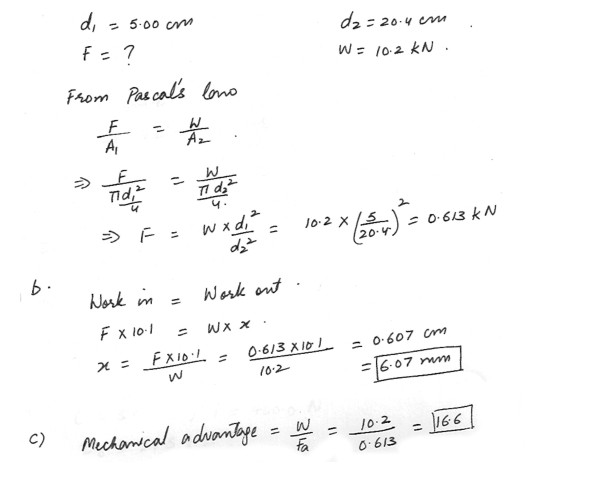 d₁ = 5.00 cm d₂ = 20.4 cm
F = ? W = 10.2 kN .
From Pascal's law
F/A₁ = W/A₂ .
⇒ F/(πd₁²/4) = W/(πd₂²/4.)
⇒ F = W × d₁²/d₂² = 10.2 × (5/20.4)² = 0.613 kN
b. Work in = Work out .
F × 10.1 = W × x .
x = F × 10.1/W = 0.613 × 10.1/10.2 = 0.607 cm
= 6.07 mm
c) Mechanical advantage = W/Fa = 10.2/0.613 = 16.6